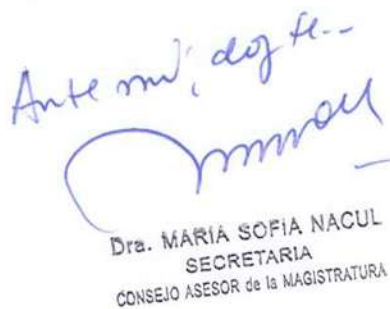 Ante mí, doy fe..-
Dra. MARIA SOFIA NACUL
SECRETARIA
CONSEJO ASESOR de la MAGISTRATURA